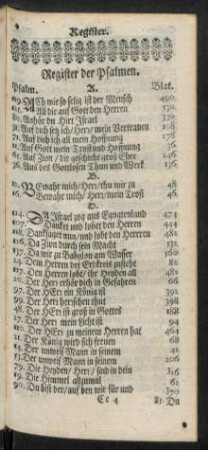 Register.
Register der Psalmen.
Psalm. A. Blat.
119. ACh wie so selig ist der Mensch 490
125. All die auf Gott den Herren
80. Anhör du Hirt Israel 330
31. Auf dich setz ich/Herr/mein Vertrauen 108
71. Auf dich hab ich all mein Hoffnung 178
11. Auf Gott mein Trost und Hoffnung 36
65. Auf Zion/die geschicht groß Ehre 246
36. Aus des Gottlosen Thun und Werk 136
B.
12. BEwahr mich/Herr/thu wir zu 48
16. Bewahr mich/Herr/mein Trost 46
D.
114. DA Israel zog aus Egyptenland 474
107. Danket und lobet den Herren 444
118. Danksaget nun/und lobt den Herren 481
76. Da Zion durch sein Macht 131
137. Da wir zu Babylon am Wasser 560
24. Dem Herren der Erdkreis zusteht 84
111. Den Herren lobt/ihr Heyden all 481
20. Der Herr erhör dich in Gefahren 66
93. Der HErr ein König ist 391
99. Der Herr herrschen thut 408
48. Der HErr ist groß in Gottes 188
27. Der Herr mein Licht ist 94
110. Der HErr zu meinem Herren hat 464
21. Der König wird sich freuen 68
14. Der unweis Mann in seinem 41
53. Der unweis Mann in seinem 206
79. Die Heyden/Herr/sind in dein 346
19. Die Himmel allzumal 61
90. Du bist der/auf den wir für und 370
Ee 4 83. Du